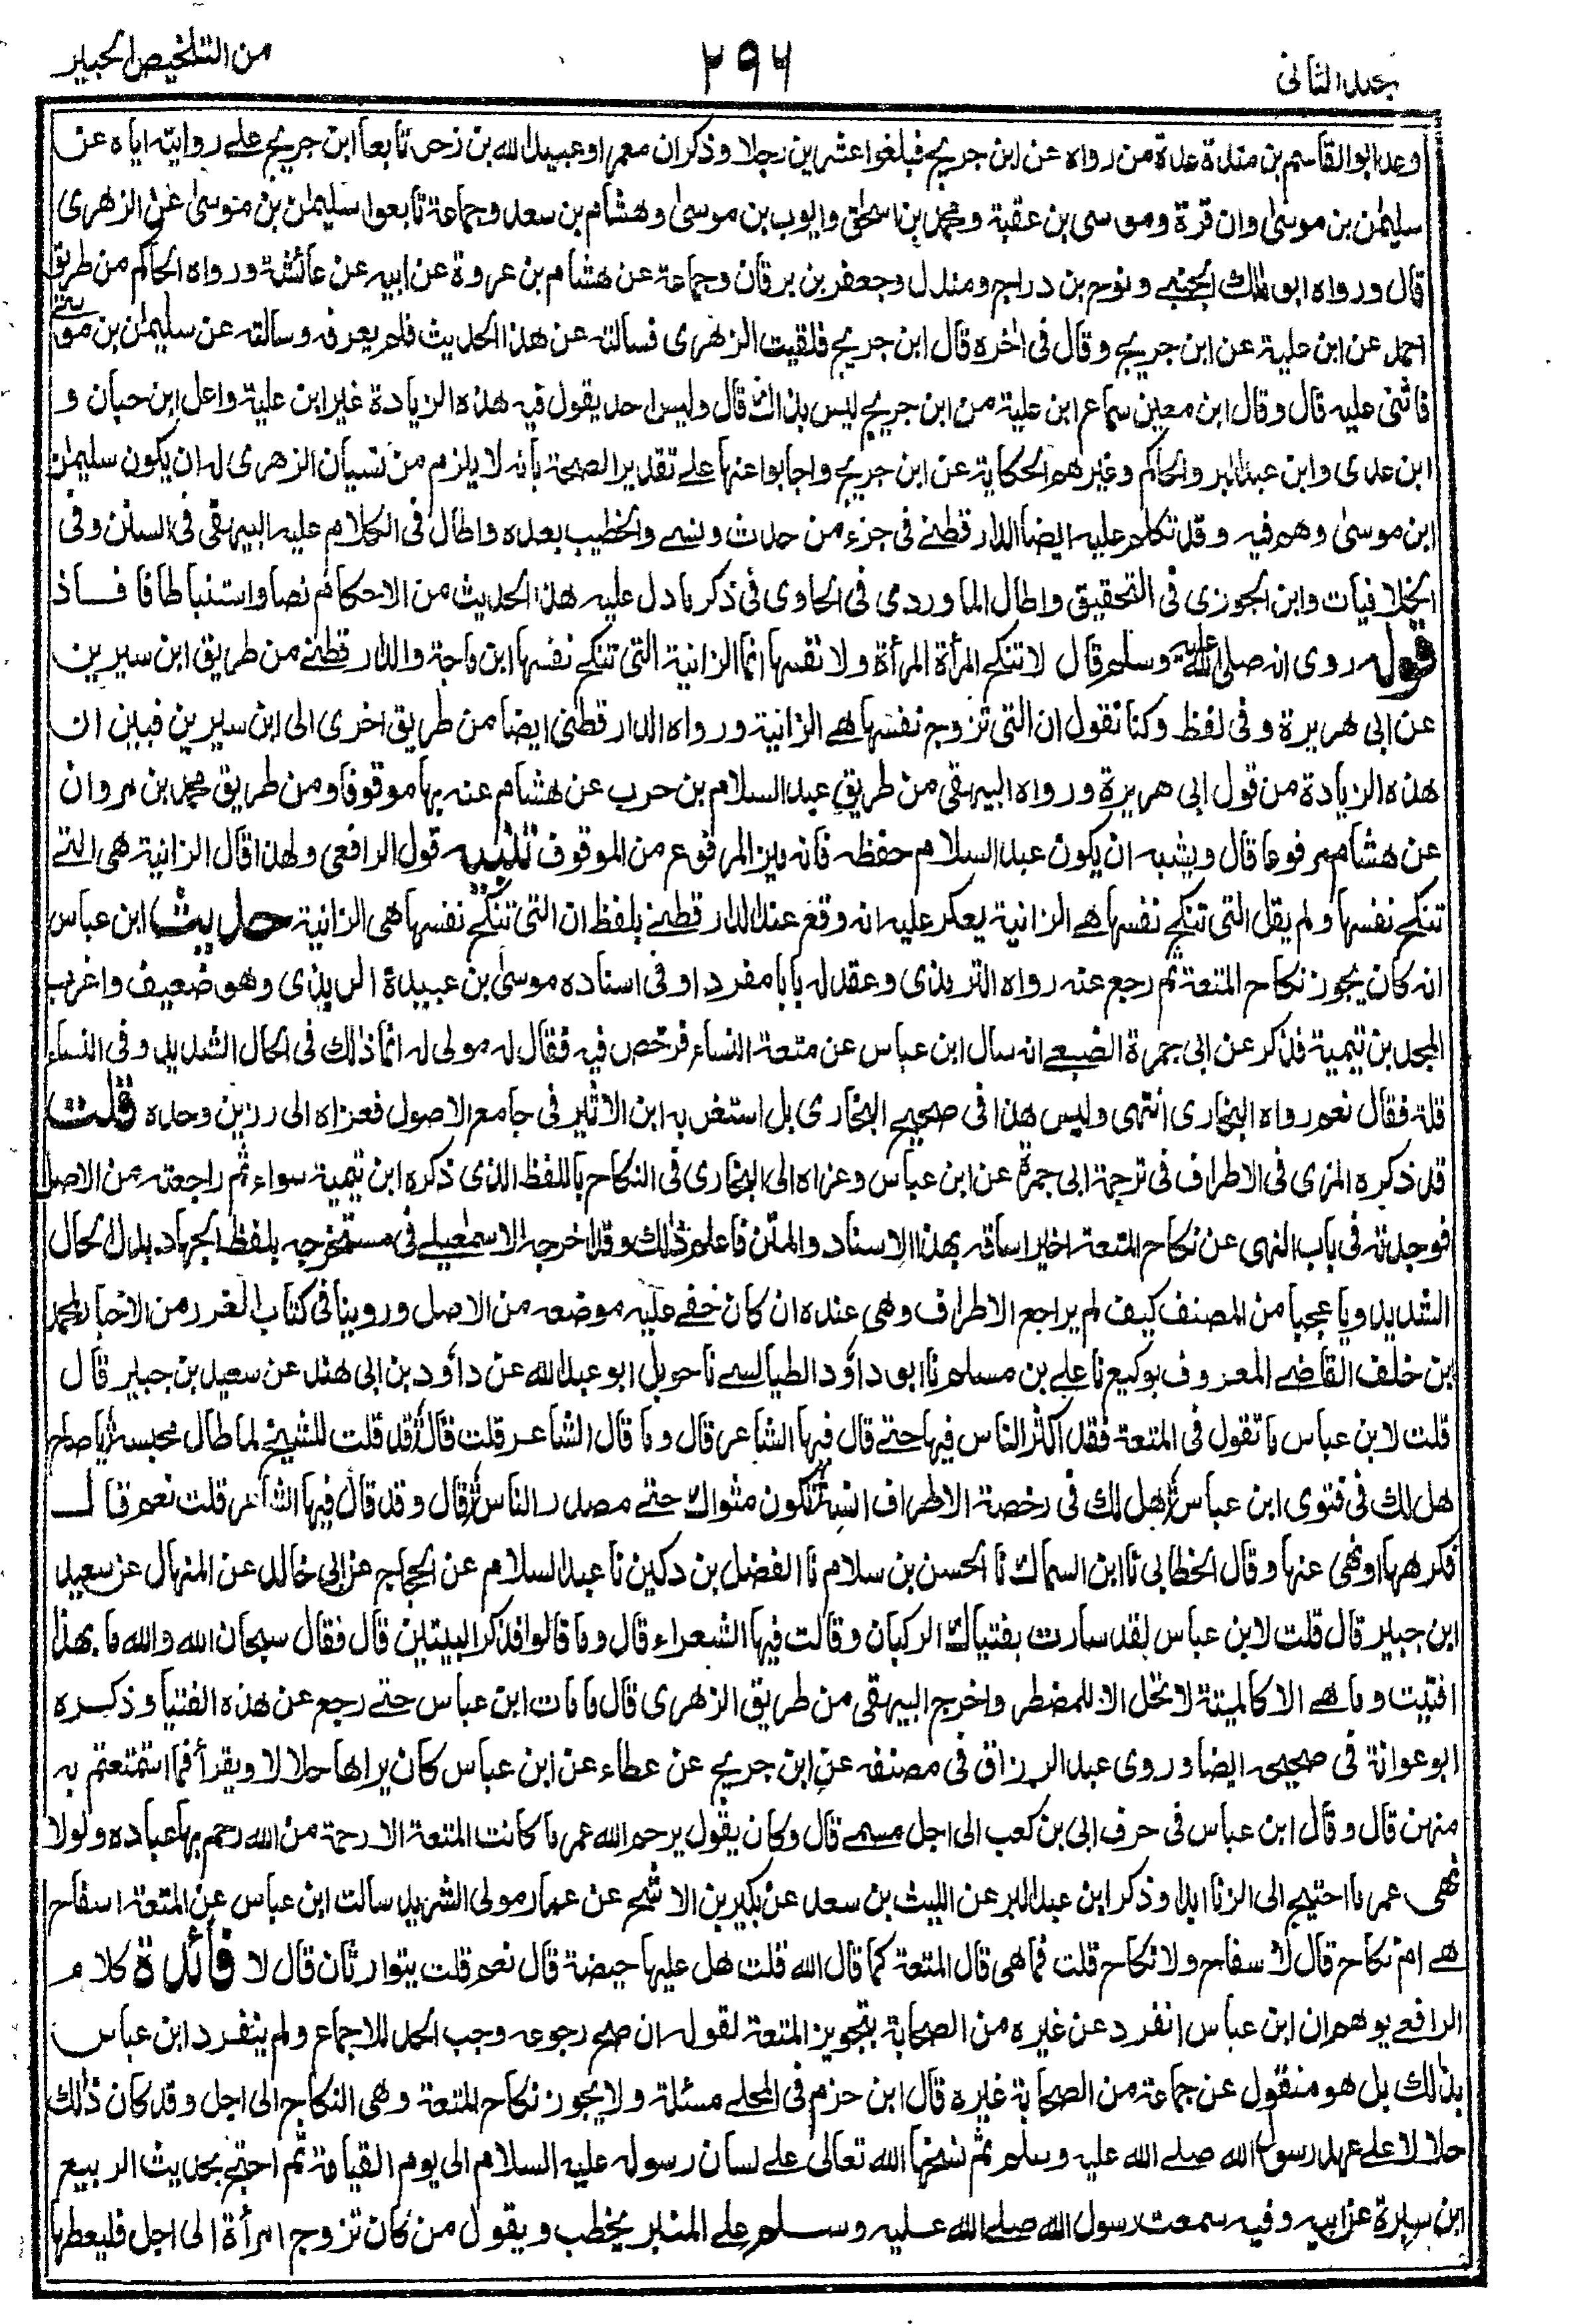 جلد الثانى
٢٩٦
من التلخيص الحبير
وعد ابو القاسم بن مندة عدة من رواه عن ابن جريج فبلغوا عشرين رجلا وذكر ان معمرا وعبيد الله بن زحر تابعا ابن جريج على روايته اياه عن
سليمٰن بن موسىٰ وان قرة وموسى بن عقبة ومحمد بن اسحٰق وايوب بن موسىٰ وهشام بن سعد وجماعة تابعوا سليمان بن موسىٰ عن الزهرى
قال ورواه ابو مٰلك الجنبے ونوح بن دراج ومندل وجعفر بن برقان وجماعة عن هشام بن عروة عن ابيه عن عائشة ورواه الحاكم من طريق
احمد عن ابن علية عن ابن جريج وقال فى اٰخره قال ابن جريج فلقيت الزهرى فسالته عن هذا الحديث فلم يعرفه وسالته عن سليمٰن بن موسىٰ
فاثنى عليه قال وقال ابن معين سماع ابن علية من ابن جريج ليس بذاك قال وليس احد يقول فيه هذه الزيادة غير ابن علية واعل ابن حبان و
ابن عدى وابن عبد البر والحاكم وغيرهم الحكاية عن ابن جريج واجابوا عنها علے تقدير الصحة بانه لا يلزم من نسيان الزهرى له ان يكون سليمٰن
ابن موسىٰ وهم فيه وقد تكلم عليه ايضا الدارقطنے فى جزء من حدث ونسے والخطيب بعده واطال فى الكلام عليه البيهقى فى السنن وفى
الخلافيات وابن الجوزى فى التحقيق واطال الماوردى فى الحاوى فى ذكر ما دل عليه هذا الحديث من الاحكام نصا واستنباطا فافــاد
قوله روى انه صلى الله عليه وسلم قال لا تنكح المرأة المرأة ولا نفسها انما الزانية التى تنكح نفسها ابن ماجة والدارقطنے من طريق ابن سيرين
عن ابى هريرة وفى لفظ وكنا نقول ان التى تزوج نفسها هے الزانية ورواه الدارقطنى ايضا من طريق اخرى الى ابن سيرين فبين ان
هذه الزيادة من قول ابى هريرة ورواه البيهقى من طريق عبد السلام بن حرب عن هشام عنه بها موقوفا ومن طريق محمد بن مروان
عن هشام مرفوعا قال ويشبه ان يكون عبد السلام حفظه فانه ميز المرفوع من الموقوف تنبيه قول الرافعى ولهذا قال الزانية هى التے
تنكح نفسها ولم يقل التى تنكح نفسها هے الزانية يعكر عليه انه وقع عند الدارقطنے بلفظ ان التى تنكح نفسها هى الزانية حديث ابن عباس
انه كان يجوز نكاح المتعة ثم رجع عنه رواه الترمذى وعقد له بابا مفردا وفى اسناده موسىٰ بن عبيدة الربذى وهو ضعيف واغرب
المجد بن تيمية فذكر عن ابى جمرة الضبعے انه سال ابن عباس عن متعة النساء فرخص فيه فقال له مولى له انما ذلك فى الحال الشديد وفى النساء
قلة فقال نعم رواه البخارى انتهى وليس هذا فى صحيح البخارى بل استغربه ابن الاثير فى جامع الاصول فعزاه الى رزين وحده قلت
قد ذكره المزى فى الاطراف فى ترجمة ابى جمرة عن ابن عباس وعزاه الى البخارى فى النكاح باللفظ الذى ذكره ابن تيمية سواء ثم راجعته من الاصل
فوجدته فى باب النهى عن نكاح المتعة اخيرا ساقه بهذا الاسناد والمتن فاعلم ذلك وقد اخرجه الاسمٰعيلے فى مستخرجه بلفظ الجهاد بدل الحال
الشديد ويا عجبا من المصنف كيف لم يراجع الاطراف وهى عنده ان كان خفے عليه موضعه من الاصل وروينا فى كتاب الغرر من الاخبار لمحمد
ابن خلف القاضے المعروف بوكيع نا علے بن مسلم نا ابو داؤد الطيالسے نا حويل ابو عبد الله عن داؤد بن ابى هند عن سعيد بن جبير قال
قلت لابن عباس ما تقول فى المتعة فقد اكثر الناس فيها حتے قال فيها الشاعر قال وما قال الشاعر قلت قال قد قلت للشيخ لما طال محبسه يا صاح
هل لك فى فتوى ابن عباس هل لك فى رخصة الاطراف انسة تكون مثواك حتے مصدر الناس قال وقد قال فيها الشاعر قلت نعم قال
فكرهها او نهى عنها وقال الخطابى نا ابن السماك نا الحسن بن سلام نا الفضل بن دكين نا عبد السلام عن الحجاج عن ابى خالد عن المنهال عن سعيد
ابن جبير قال قلت لابن عباس لقد سارت بفتياك الركبان وقالت فيها الشعراء قال وما قالوا فذكر البيتين قال فقال سبحان الله والله ما بهذا
افتيت وما هے الا كالميتة لا تحل الا للمضطر واخرج البيهقى من طريق الزهرى قال ما مات ابن عباس حتے رجع عن هذه الفتيا وذكره
ابو عوانة فى صحيحه ايضا وروى عبد الرزاق فى مصنفه عن ابن جريج عن عطاء عن ابن عباس كان يراها حلالا ويقرأ فما استمتعتم به
منهن قال وقال ابن عباس فى حرف ابى بن كعب الى اجل مسمے قال وكان يقول يرحم الله عمر ما كانت المتعة الا رحمة من الله رحم بها عباده ولولا
نهى عمر ما احتيج الى الزنا ابدا وذكر ابن عبد البر عن الليث بن سعد عن بكير بن الاشج عن عمار مولى الشريد سالت ابن عباس عن المتعة اسفاح
هے ام نكاح قال لا سفاح ولا نكاح قلت فما هى قال المتعة كما قال الله قلت هل عليها حيضة قال نعم قلت يتوارثان قال لا فائدة كلام
الرافعے يوهم ان ابن عباس انفرد عن غيره من الصحابة بتجويز المتعة لقوله ان صح رجوعه وجب الحد للاجماع ولم ينفرد ابن عباس
بذلك بل هو منقول عن جماعة من الصحابة غيره قال ابن حزم فى المحلے مسئلة ولا يجوز نكاح المتعة وهى النكاح الى اجل وقد كان ذلك
حلالا علے عهد رسول الله صلے الله عليه وسلم ثم نسخها الله تعالىٰ علے لسان رسوله عليه السلام الى يوم القيامة ثم احتج بحديث الربيع
ابن سبرة عن ابيه وفيه سمعت رسول الله صلے الله عليه وسلم علے المنبر يخطب ويقول من كان تزوج امرأة الى اجل فليعطها